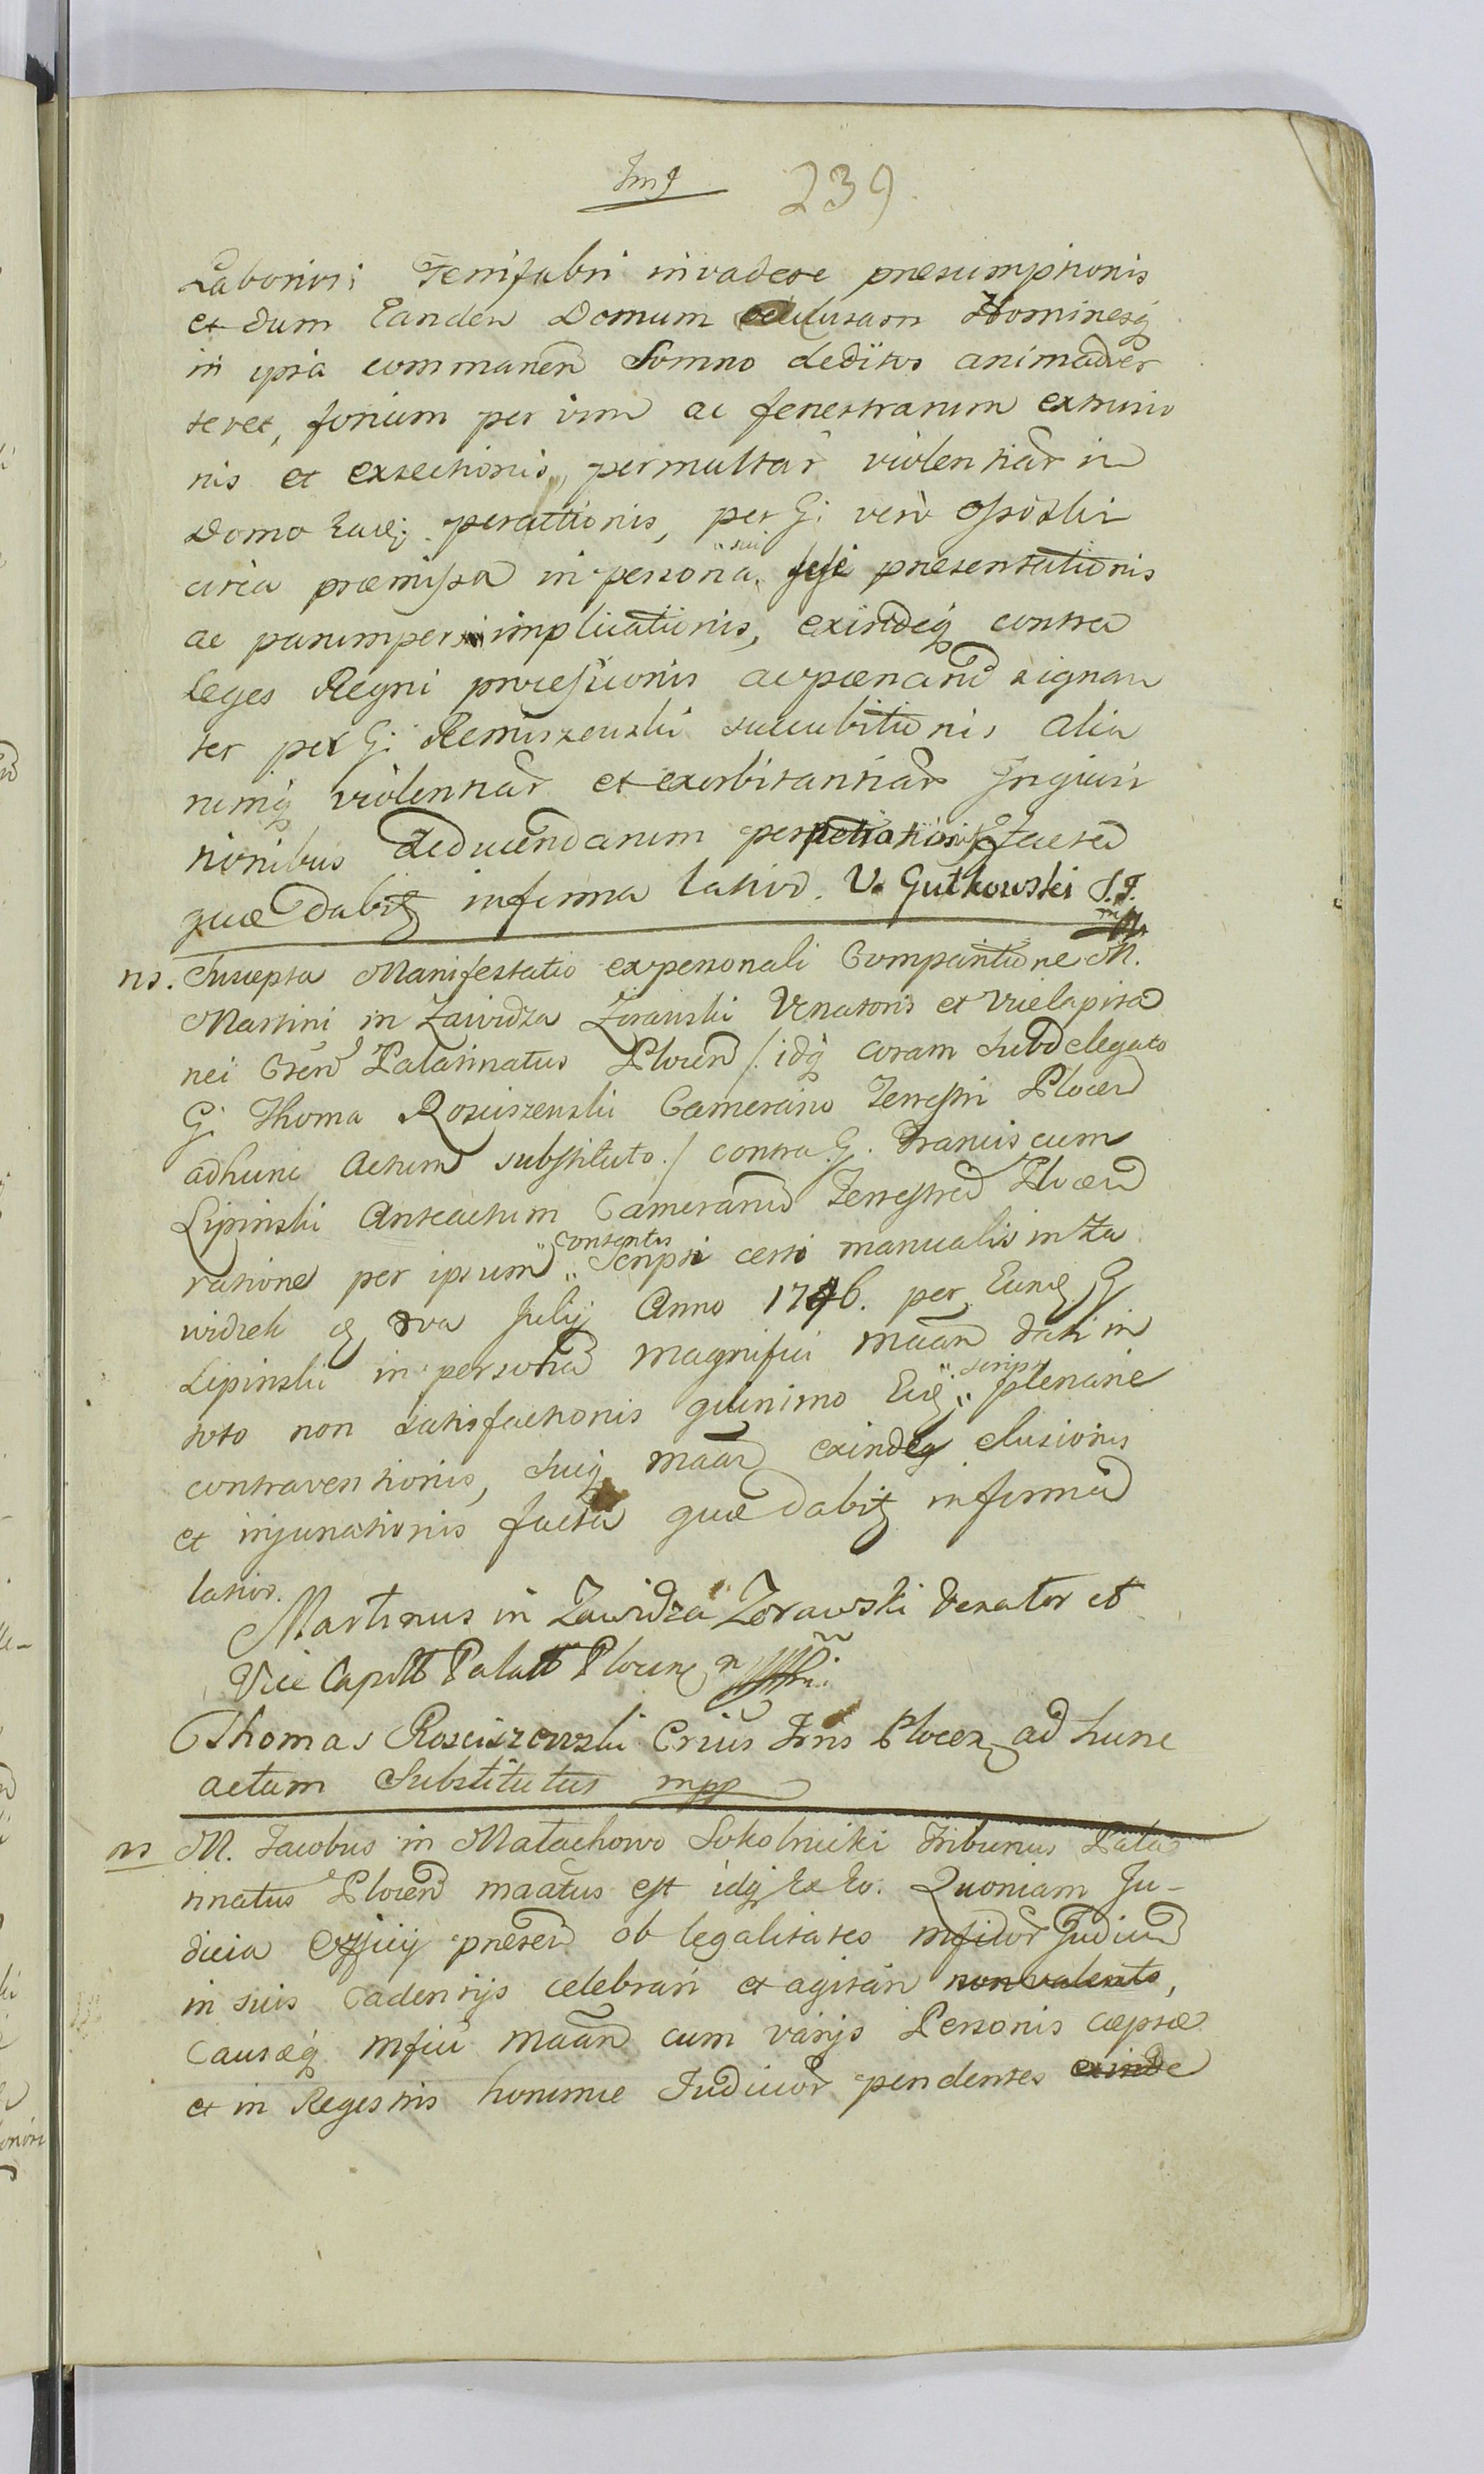 239
Laboriosi Ferrifabri invadere præsumptionis
et dum Eanden Domum occlusam Hominesq
in ipsa commanen Somno deditos animadver
teret, forium per vim ac fenestrarum extrusio
nis et exsectionis, permultar violentiar in
Domo Eade perattionis, per G: vero Osiozki
circa præmissa in persona sui sese præsentationis
ac parumper implicationis, exindeq contra
leges Regni processionis ac pœnarum signan
ter per G: Remiszewski succubitionis alia
rumq violentiar et exorbitantiar Inquisi
tionibus deducendarum perpetrationis facta
quæ dabitq in forma latior. V. Gutkowski S.T.
mp
ns. Suscepta Manifestatio ex personali Comparitione M.
Martini in Zawidza Zorawski Venatoris et Vicecapita
nei Cren Palatinatus Plocen /: idq coram Subdelegato
G: Thoma Rosciszewski Camerario Terrestri Plocen
ad hunc Actum substituto :/ contra G. Franciscum
Lipinski Anteactum Camerarium Terrestrem Plocen
ratione per ipsum contentis Scripti certi manualis in Za
widzek d 2va Julij Anno 1746. per Eundq G
Lipinski in personam magnifici maan dati in
toto non satisfactionis quinimo Eidq scripti plenarie
contraventionis, suiq maan exindeq elusionis
et injuriationis facta quæ dabitq in forma
latior.
Martinus in Zawidza Zorawski Venator et
Vice Capitt Palatt Plocens mpp
Thomas Rosciszewski Crius Trris Plocen ad hunc
actum Substitutus mpp
ns M. Jacobus in Małachowo Sokolnicki Tribunus Pala
tinatus Plocen maatus est idq Ex Eo. Quoniam Ju-
dicia Officij præsen ob legalitates infidor Judicum
in suis Cadentijs celebrari et agitari non valente,
Causæq Mfici maan cum varijs Personis cæptæ
et in Regestris hommne Judicior pendentes exinde